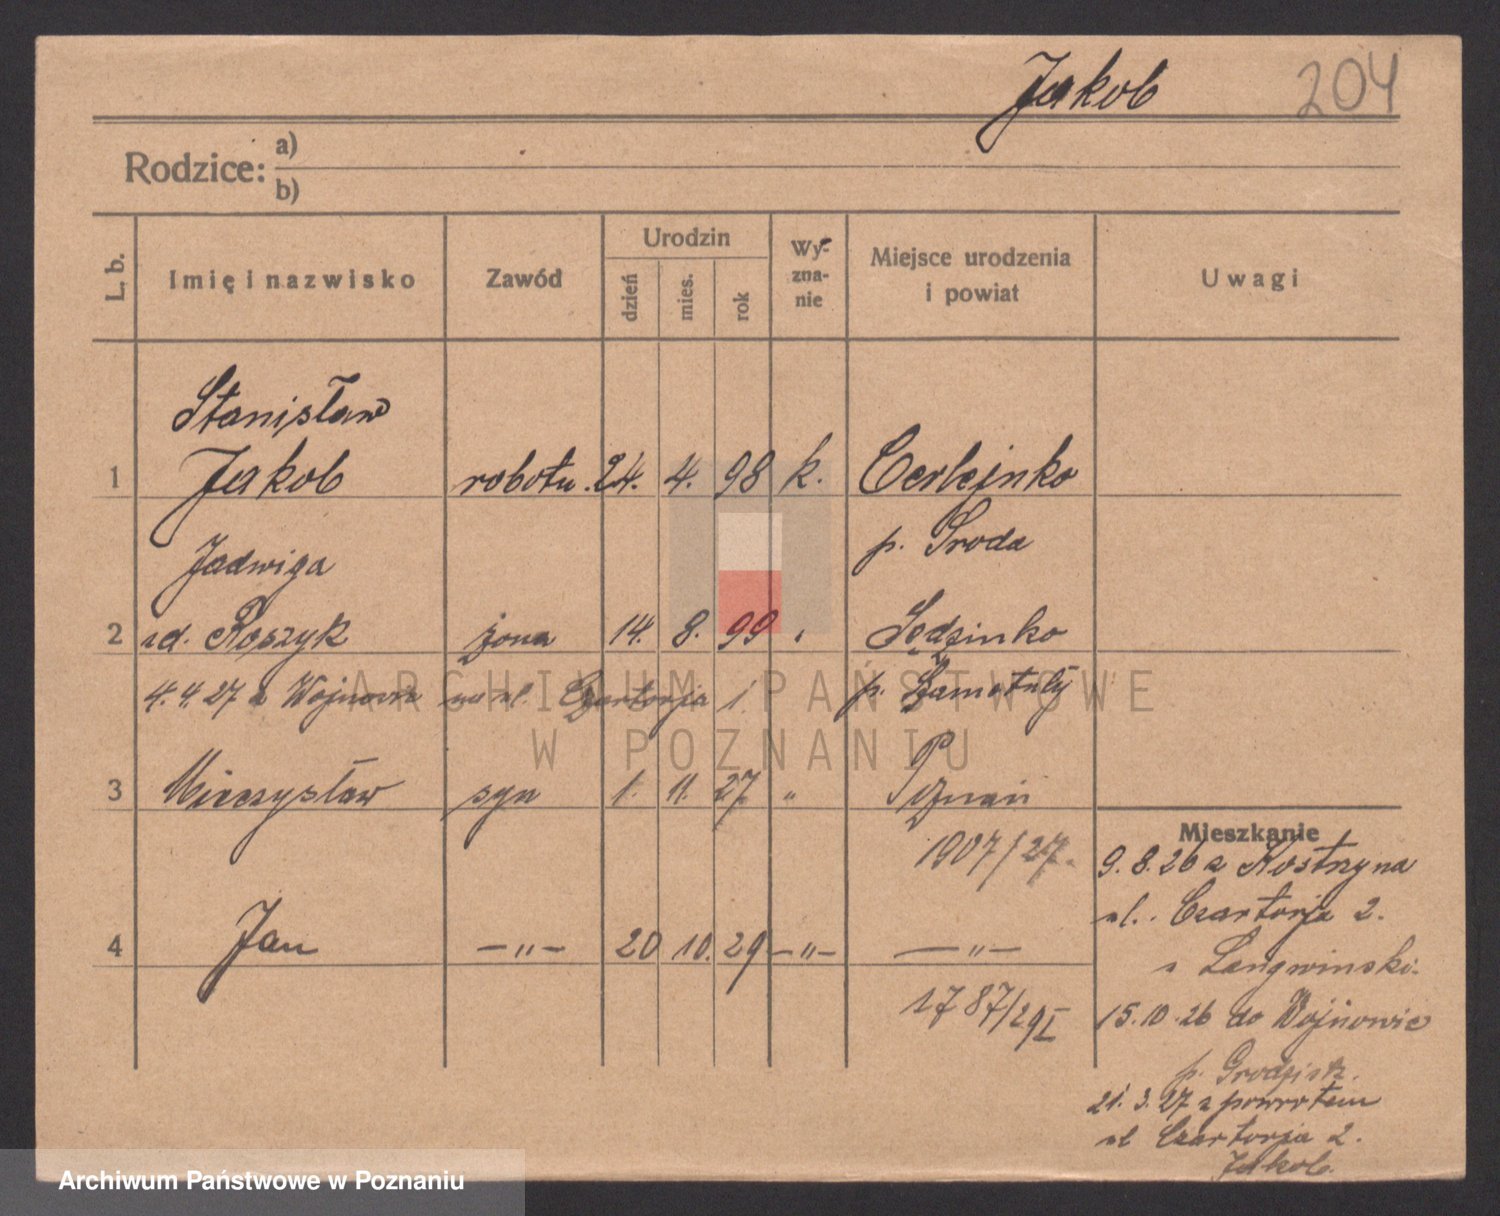 Jakob 204
Rodzice: a)
b)
L. b. Imię i nazwisko Zawód Urodzin dzień mies. rok Wy-zna-nie Miejsce urodzenia i powiat Uwagi
Stanisław
1 Jakob robotn. 24. 4. 98 k. Cerlejnko
Jadwiga p. Środa
2 zd. Roszyk żona 14. 8. 99 " Sędzinko
4.4.27 z Wojnowic na ul. Czartorja 1. p. Szamotuły
3 Mieczysław syn 1. 11. 27 " Poznań
1907/27.
4 Jan —"— 20 10. 29 —"— —"—
1787/29 I
Mieszkanie
9.8.26 z Kostrzyna
ul. Czartorja 2.
Langwinski.
15.10.26 do Wojnowic
p. Grodzisk.
21.3.27 z powrotem
ul Czartorja 2.
Jakob.
ARCHIWUM PAŃSTWOWE
W POZNANIU
Archiwum Państwowe w Poznaniu